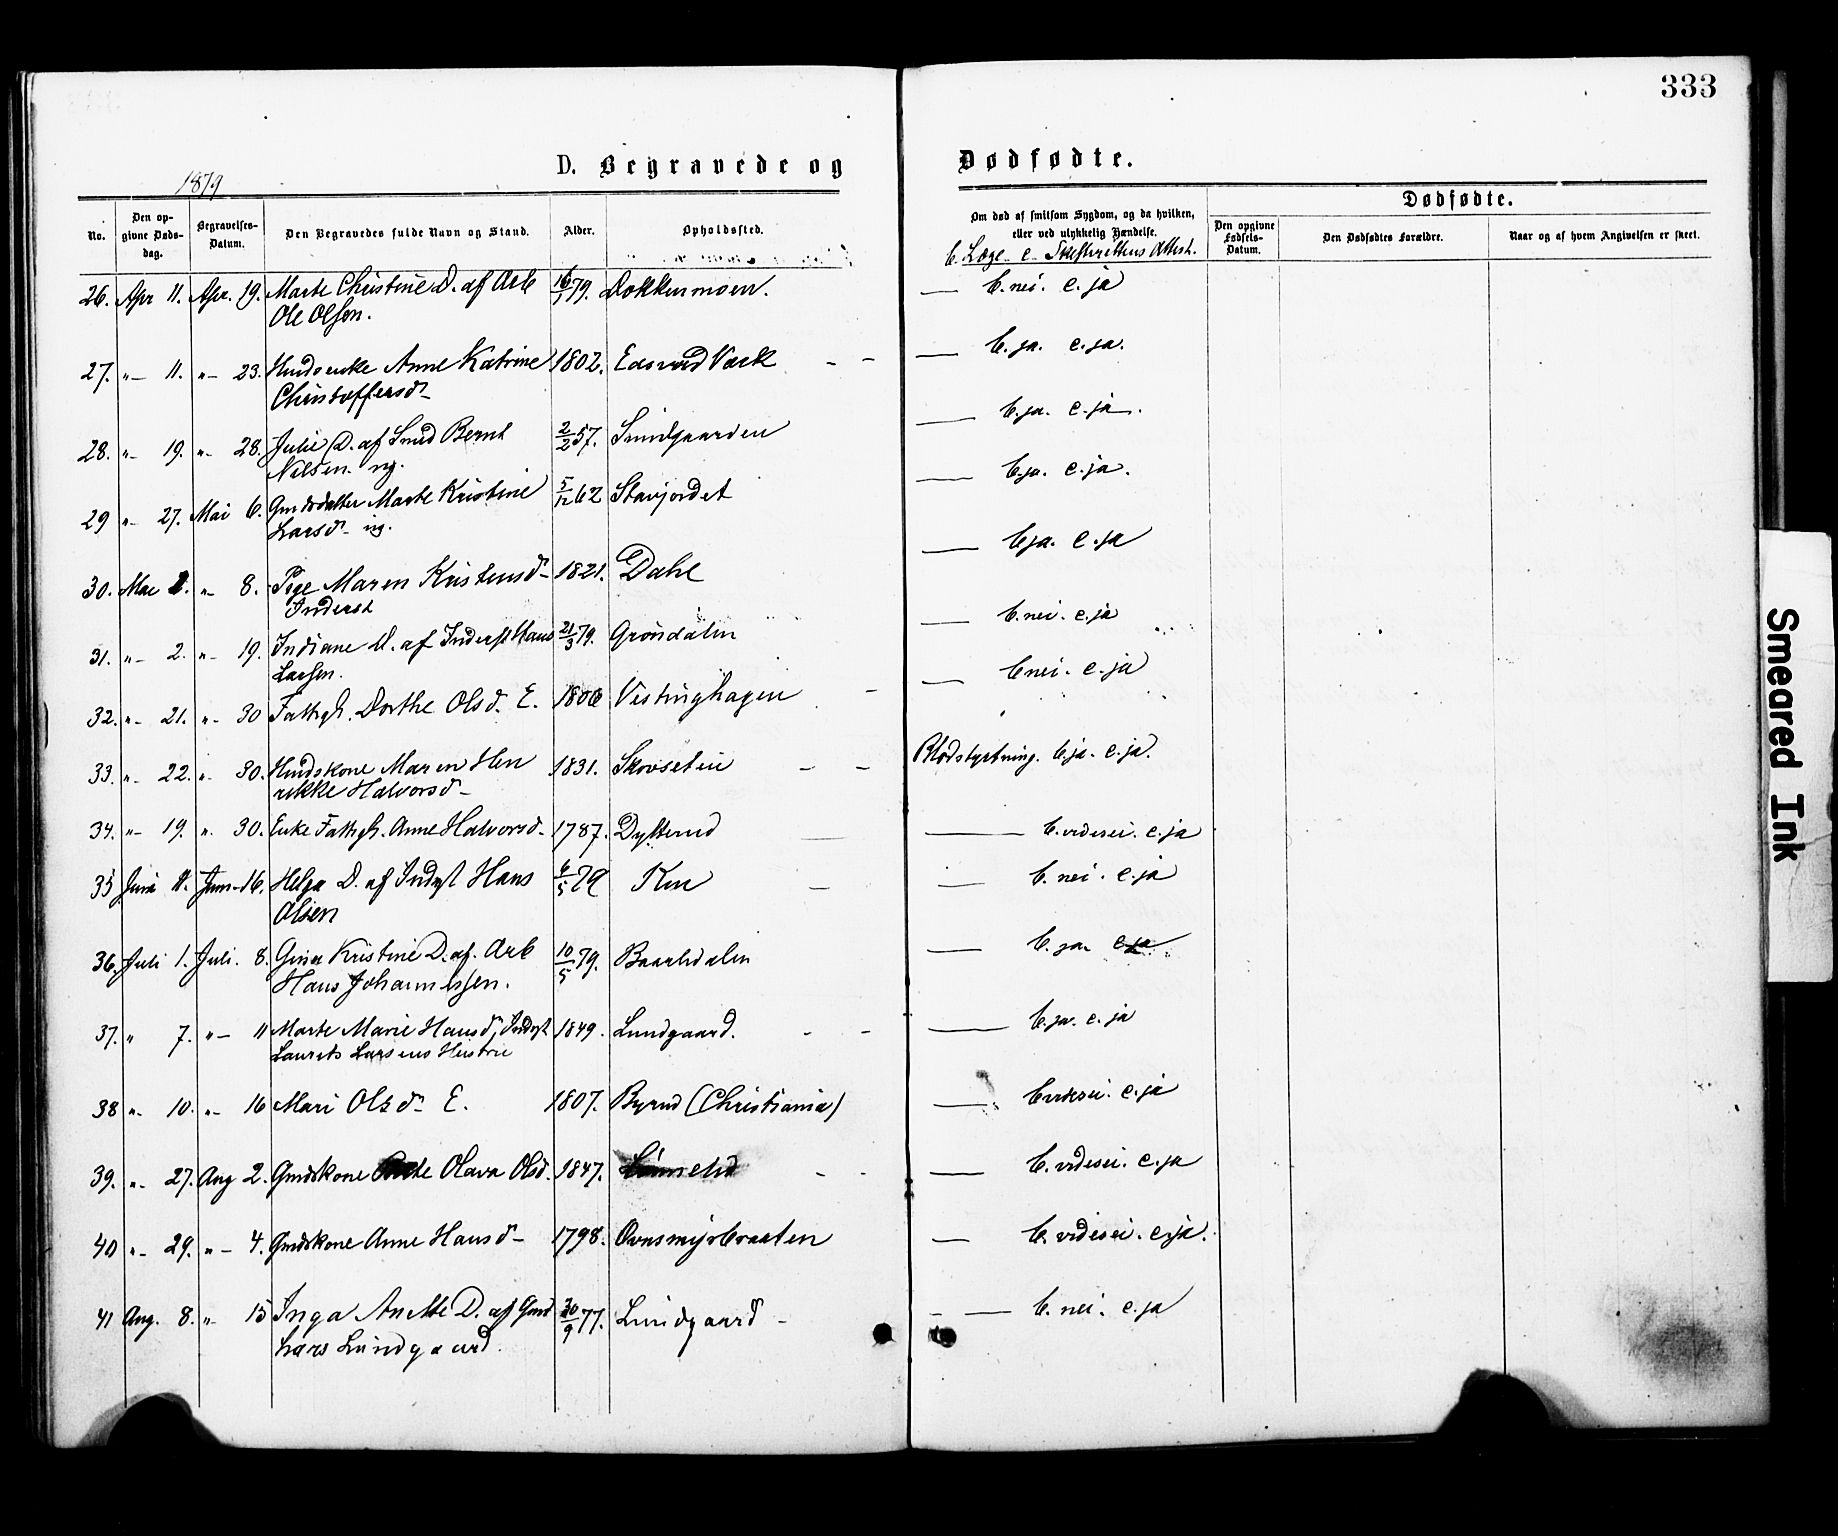 333
D. Begravede og Dødfødte.
1879
No. Den opgivne Dødsdag. Begravelses-Datum. Den Begravedes fulde Navn og Stand. Alder. Opholdssted. Om død af smitsom Sygdom, og da hvilken, eller ved ulykkelig Hændelse. Dødfødte.
Den opgivne Fødsels-Datum. Den Dødfødtes Forældre. Naar og af hvem Angivelsen er skeet.
b. Læge- c- Skifterettens Attest.
26. Apr 11. Apr. 19. Marte Christine D. af Arb 79. Dokkenmoen. — b. nei. c. ja
Ole Olsen.
27. "– 11. "– 23. Anne Katrine 1802. Værk — b. ja. c. ja.
Christoffersd–
28. "– 19. "– 28. Julie D. af Smed Bernt 2/2 57. Smidgaarden — b. ja. c. ja.
Nilsen ug.
29 "– 27. Mai 6. Gmdsdatter Marte Kristine 5/12 62 Stavjordet — b. ja. c. ja.
Larsd– ug.
30. Mai 2. "– 8. Pige Maren Kristensd– 1821. Dahl — b ja. c. ja
Inderst
31. "– 2. "– 19. Indiane D. af Inderst Hans 21/3 79. Grøndalen — b. nei. c. ja
Larsen.
32. "– 21. "– 30 Fattigh. Dorthe Olsd. E. Vestinghagen — b nei. c. ja
33. "– 22. "– 30. Husdskone Maren Hen 1831. Skovsetin Blodstyrtning. b ja. c. ja.
rikke Halvorsd–
34. "– 19. "– 30. Enke Fattigh. Anne Halvorsd– 1787. — b. vides ei. c. ja
35 Juni 11. Juni 16. Helga D. af Inderst Hans 6/5 79 — b. nei. c. ja
Olsen
36. Juli 1. Juli. 8. Gina Kristine D. af. Arb 10/5 79. — b. ja. c. ja
Hans Johannessen.
37. " 7. "– 11 Marte Marie Hansd, Inderst 1849. Lundgaard. — b. ja. c. ja
Laurits Larsens Hustru
38 "– 10. "– 16 Mari Olsd– E. 1807. Byrud (Christiania) — b. vides ei. c. ja
39. "– 27. Aug 2. Gmdskone Olava Olsd. 1847. — b. vides ei. c. ja
40 "– 29. "– 4. Gmdskone Anne Hansd– 1798. Ovnsmyrbraaten — b. vides ei. c. ja.
41 Aug. 8. "– 15 Inga Anette D. af Gmd 30/9 77. Lundgaard – — b. nei. c. ja
Lars Lundgaard.
Smeared Ink